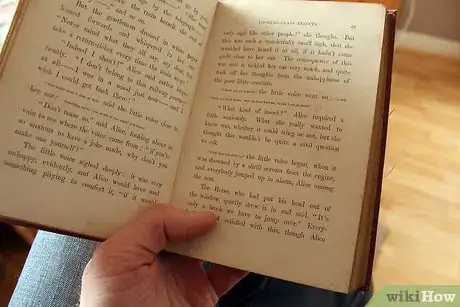 But the gentleman dressed in white paper
leaned forwards and whispered in her ear,
"Never mind what they all say, my dear, but
take a return-ticket every time the train stops."
"Indeed I shan't!" Alice said rather impa-
tiently. "I don't belong to this railway journey
at all—I was in a wood just now—and I
wish I could get back there!"
said the little voice close to
her ear;
"Don't tease so," said Alice, looking about in
vain to see where the voice came from; "if you're
so anxious to have a joke made, why don't you
make one yourself?"
The little voice sighed deeply: it was very
unhappy, evidently, and Alice would have said
something pitying to comfort it, "if it would
LOOKING-GLASS INSECTS.
only sigh like other people!" she thought. But
this was such a wonderfully small sigh, that she
wouldn't have heard it at all, if it hadn't come
quite close to her ear. The consequence of this
was that it tickled her ear very much, and quite
took off her thoughts from the unhappiness of
the poor little creature.
the little voice went on;
"What kind of insect?" Alice inquired a
little anxiously. What she really wanted to
know was, whether it could sting or not, but she
thought this wouldn't be quite a civil question
to ask.
the little voice began, when it
was drowned by a shrill scream from the engine,
and everybody jumped up in alarm, Alice among
the rest.
The Horse, who had put his head out of
the window, quietly drew it in and said, "It's
only a brook we have to jump over." Every-
satisfied with this, though Alice
wikiHow